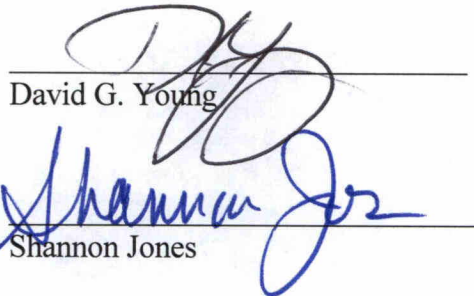 David G. Young
Shannon Jones
Shannon Jones